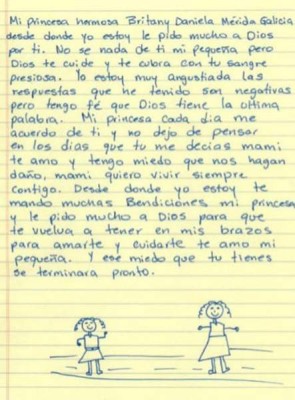 Mi princesa hermosa Britany Daniela Mérida Galicia
desde donde yo estoy le pido mucho a Dios
por ti. No se nada de ti mi pequeña pero
Dios te cuide y te cubra con tu sangre
presiosa. Yo estoy muy angustiada las
respuestas que he tenido son negativas
pero tengo fé que Dios tiene la última
palabra. Mi princesa cada día me
acuerdo de ti y no dejo de pensar
en los días que tu me decías mami
te amo y tengo miedo que nos hagan
daño, mami quiero vivir siempre
contigo. Desde donde yo estoy te
mando muchas Bendiciones mi princesa
y le pido mucho a Dios para que
te vuelva a tener en mis brazos
para amarte y cuidarte te amo mi
pequeña. Y ese miedo que tu tienes
se terminara pronto.